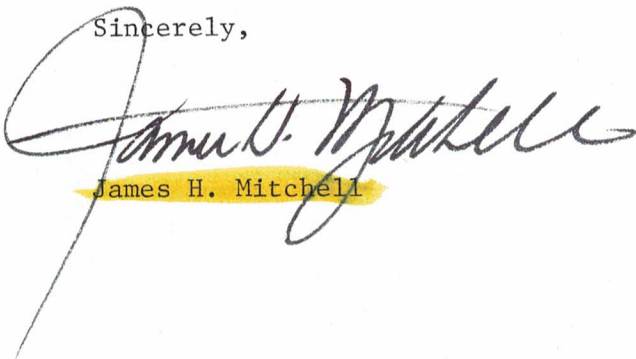 Sincerely,
James H. Mitchell
James H. Mitchell